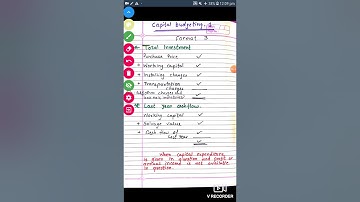 12:09 pm
Capital Budgeting 2
Format 3
Total Investment
Purchase Price ✓
+ Working Capital ✓
+ Installing charges ✓
+ Transportation charges ✓
✓
* Last year cashflow.
Working Capital ✓
+ Salvage value ✓
+ Cash flow of last year ✓
✓
When capital expenditure
is given in question and profit or
annual income is not available
in question.
V RECORDER